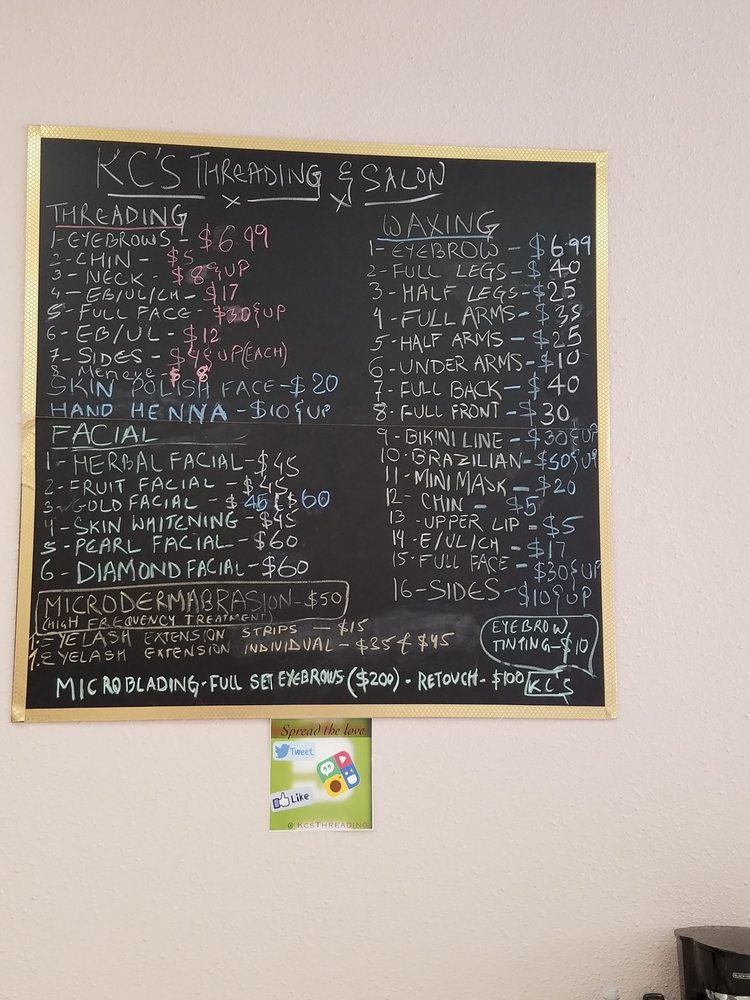 KC'S THREADING & SALON
THREADING
1-EYEBROWS - $6.99
2-CHIN - $5
3- NECK - $8 & UP
4- EB/UL/CH - $17
5- FULL FACE - $30 & UP
6- EB/UL - $12
7- SIDES - $4 & UP (EACH)
$8
SKIN POLISH FACE - $20
HAND HENNA - $10 & UP
FACIAL
1- HERBAL FACIAL - $45
2- FRUIT FACIAL - $45
3- GOLD FACIAL - $45 & $60
4- SKIN WHITENING - $45
5- PEARL FACIAL - $60
6- DIAMOND FACIAL - $60
MICRODERMABRASION - $50
(HIGH FREQUENCY TREATMENT)
1. EYELASH EXTENSION STRIPS - $15
1. EYELASH EXTENSION INDIVIDUAL - $35 & $45
MICROBLADING - FULL SET EYEBROWS ($200) - RETOUCH - $100 KC'S
WAXING
1- EYEBROW - $6.99
2- FULL LEGS - $40
3- HALF LEGS - $25
4- FULL ARMS - $35
5- HALF ARMS - $25
6- UNDER ARMS - $10
7- FULL BACK - $40
8- FULL FRONT - $30
9- BIKINI LINE - $30 & UP
10- BRAZILIAN - $50 & UP
11- MINI MASK - $20
12- CHIN - $5
13- UPPER LIP - $5
14- E/UL/CH - $17
15- FULL FACE - $30 & UP
16- SIDES - $10 & UP
EYEBROW
TINTING - $10
Spread the love
Tweet
Like
KCSTHREADING